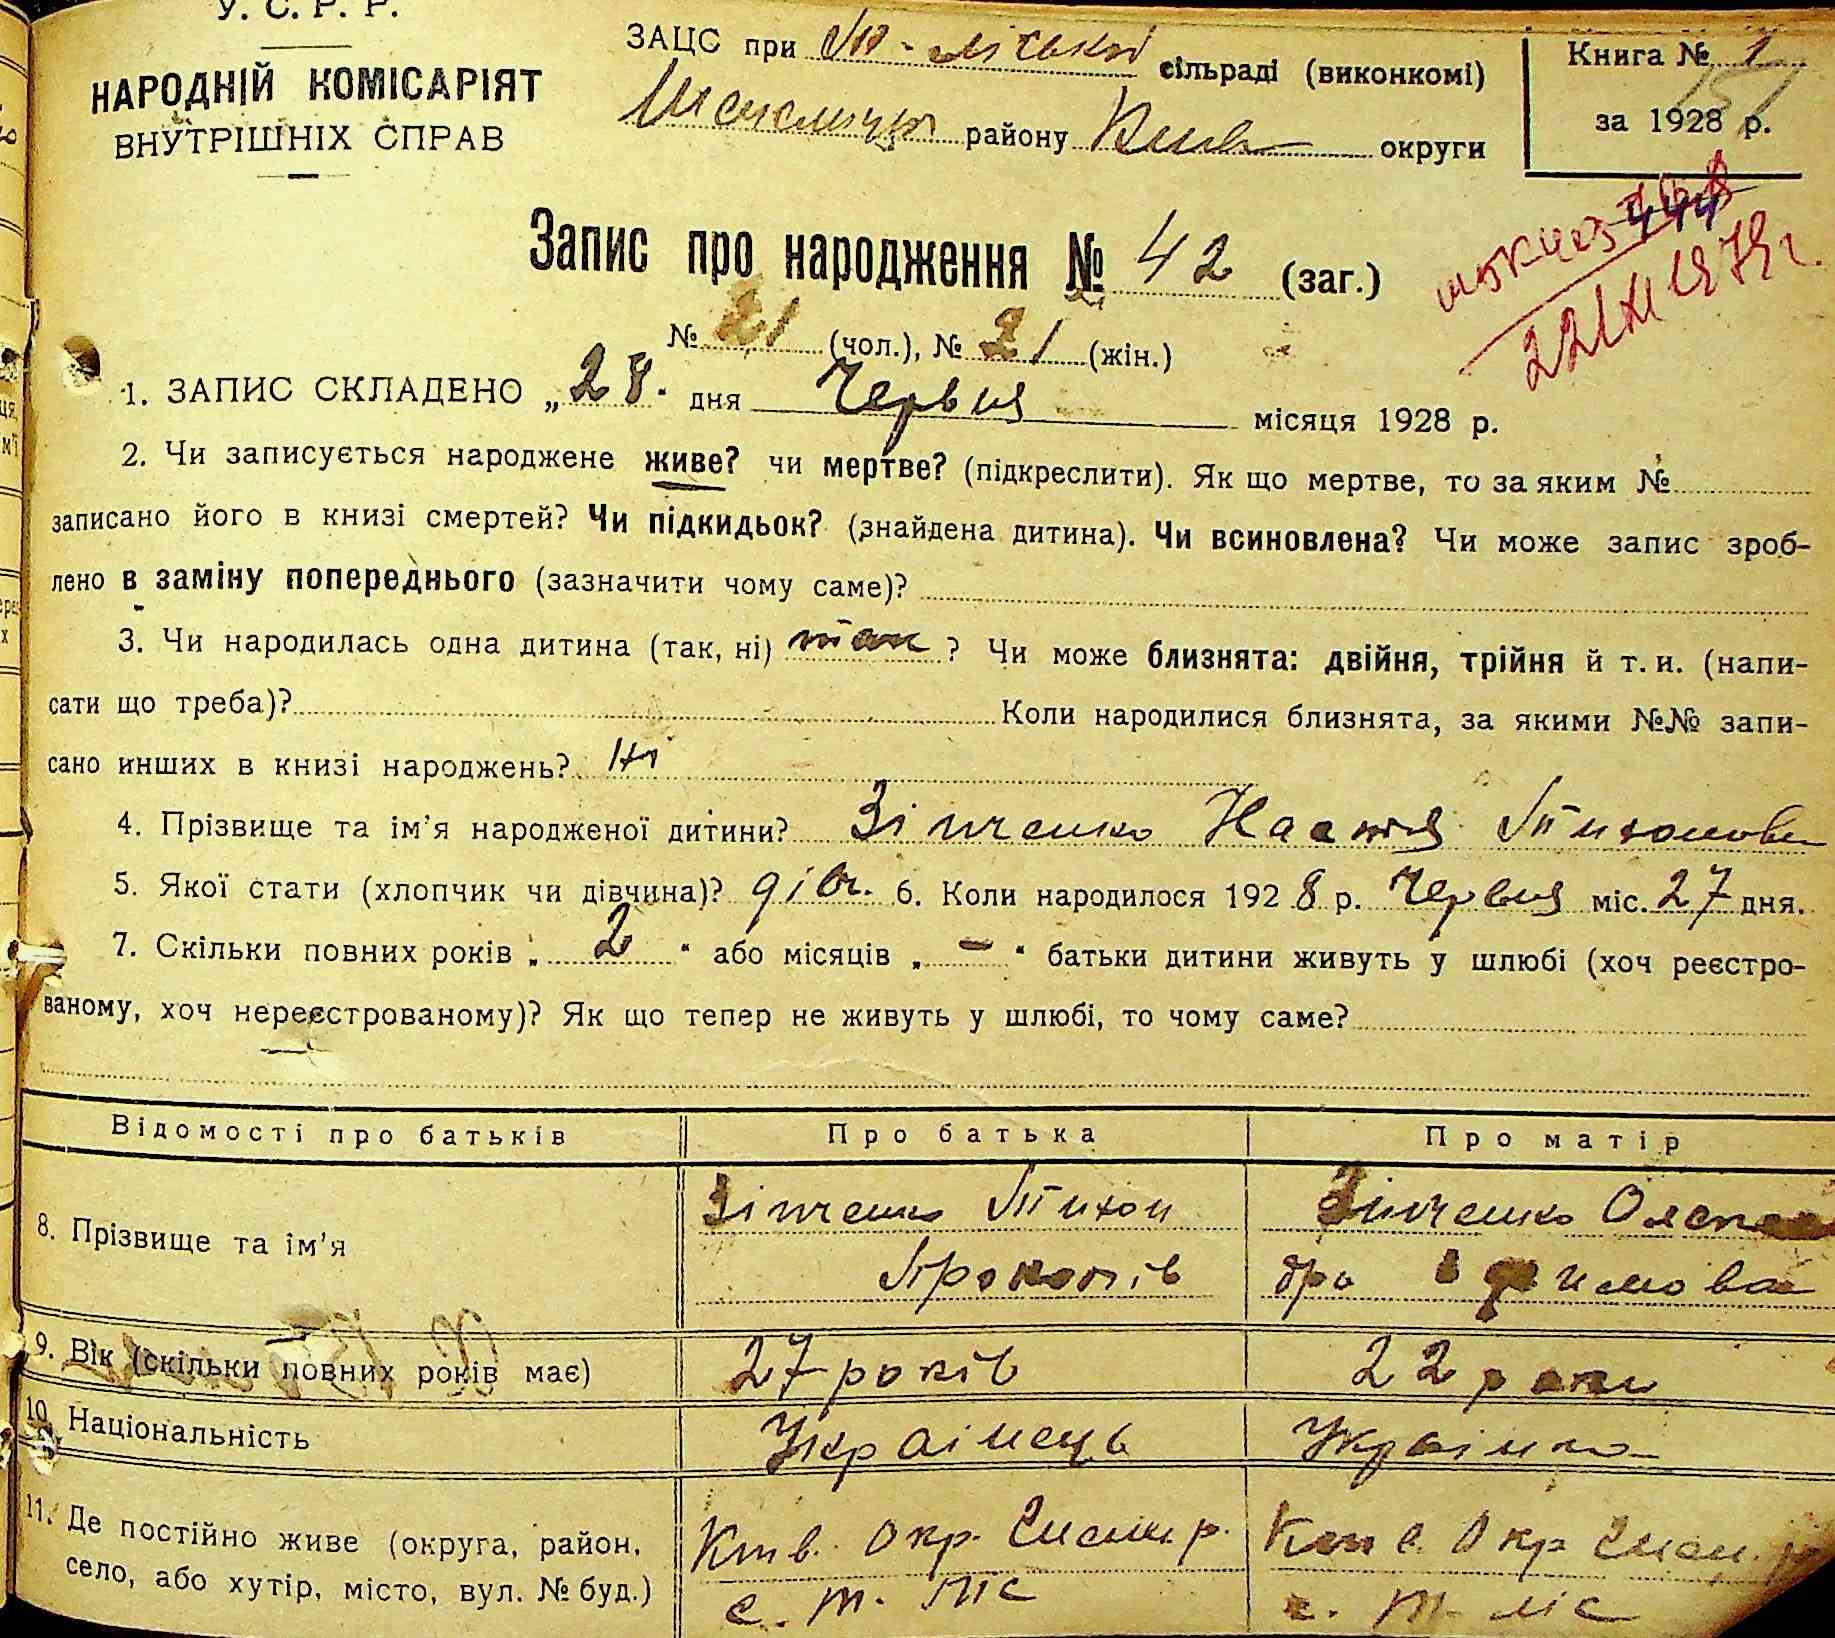 У. С. Р. Р.
НАРОДНІЙ КОМІСАРІЯТ
ВНУТРІШНІХ СПРАВ
ЗАЦС при Т-ліській сільраді (виконкомі)
району Київ округи
Книга № 1
151
за 1928 р.
Запис про народження № 42 (заг.)
№ 21 (чол.), № 21 (жін.)
444
22/XI 1979 г.
1. ЗАПИС СКЛАДЕНО „28" дня Червня місяця 1928 р.
2. Чи записується народжене живе? чи мертве? (підкреслити). Як що мертве, то за яким №
записано його в книзі смертей? Чи підкидьок? (знайдена дитина). Чи всиновлена? Чи може запис зроб-
лено в заміну попереднього (зазначити чому саме)?
3. Чи народилась одна дитина (так, ні) так? Чи може близнята: двійня, трійня й т. и. (напи-
сати що треба)? Коли народилися близнята, за якими №№ запи-
сано инших в книзі народжень? Ні
4. Прізвище та ім'я народженої дитини? Зінченко Настя Тихонова
5. Якої стати (хлопчик чи дівчина)? дівч. 6. Коли народилося 1928 р. Червня міс. 27 дня.
7. Скільки повних років „2" або місяців „–" батьки дитини живуть у шлюбі (хоч реєстро-
ваному, хоч нереєстрованому)? Як що тепер не живуть у шлюбі, то чому саме?
Відомості про батьків Про батька Про матір
8. Прізвище та ім'я Зінченко Тихон Прокопів Зінченко
9. Вік (скільки повних років має) 27 років 22 роки
10. Національність Українець Українка
11. Де постійно живе (округа, район, село, або хутір, місто, вул. № буд.) Київ. Окр. с. Т. ліс Київ. Окр с. Т. ліс